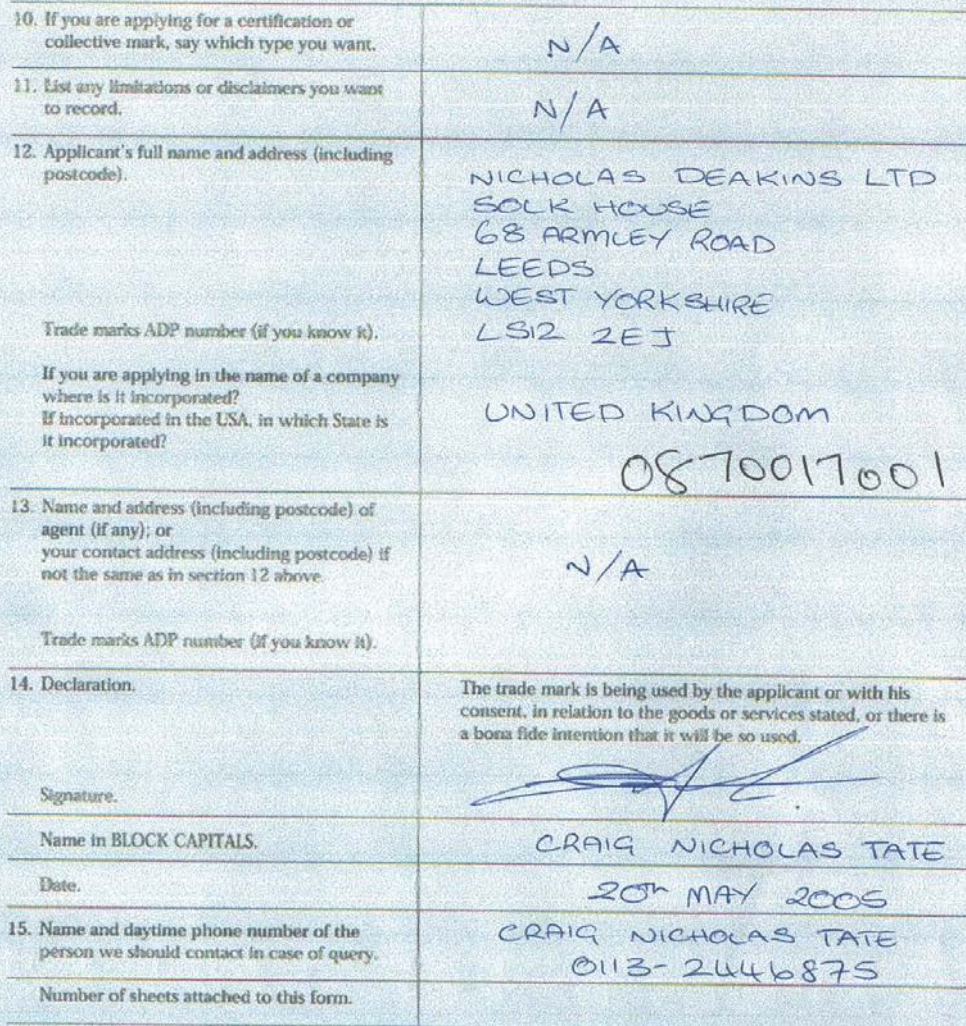 10. If you are applying for a certification or
collective mark, say which type you want.
N/A
11. List any limitations or disclaimers you want
to record.
N/A
12. Applicant's full name and address (including
postcode).
NICHOLAS DEAKINS LTD
SOLK HOUSE
68 ARMLEY ROAD
LEEDS
WEST YORKSHIRE
Trade marks ADP number (if you know it).
LS12 2EJ
If you are applying in the name of a company
where is it incorporated?
If incorporated in the USA, in which State is
it incorporated?
UNITED KINGDOM
0870017001
13. Name and address (including postcode) of
agent (if any); or
your contact address (including postcode) if
not the same as in section 12 above.
N/A
Trade marks ADP number (if you know it).
14. Declaration.
The trade mark is being used by the applicant or with his
consent, in relation to the goods or services stated, or there is
a bona fide intention that it will be so used.
Signature.
Name in BLOCK CAPITALS.
CRAIG NICHOLAS TATE
Date.
20th MAY 2005
15. Name and daytime phone number of the
person we should contact in case of query.
CRAIG NICHOLAS TATE
0113-2446875
Number of sheets attached to this form.